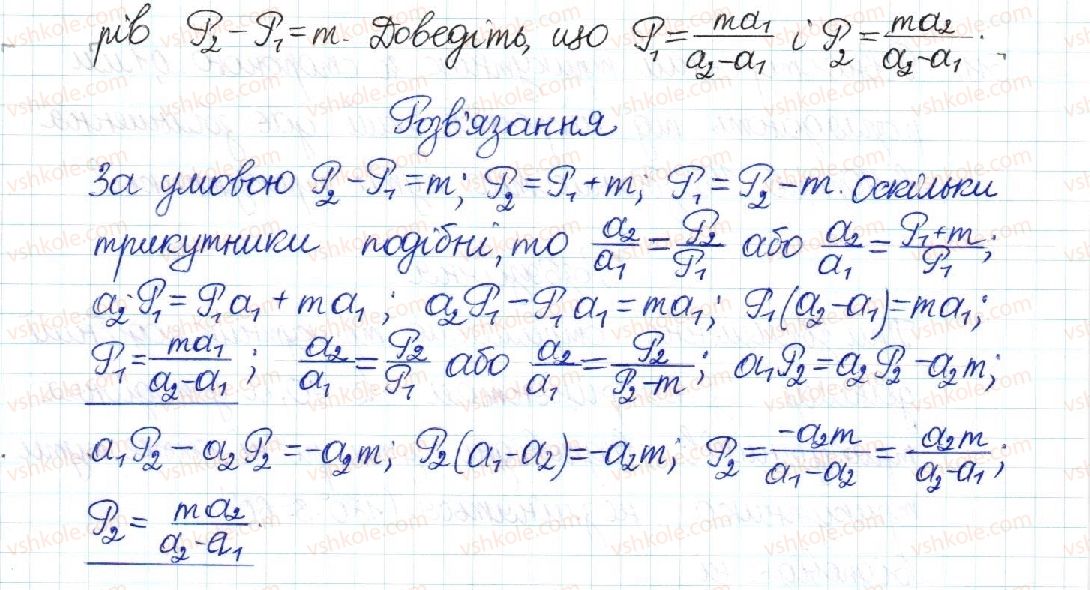 рів P₂ - P₁ = m. Доведіть, що P₁ = ma₁/(a₂-a₁) і P₂ = ma₂/(a₂-a₁).
Розв'язання
За умовою P₂ - P₁ = m; P₂ = P₁ + m; P₁ = P₂ - m. Оскільки
трикутники подібні, то a₂/a₁ = P₂/P₁ або a₂/a₁ = (P₁+m)/P₁;
a₂·P₁ = P₁a₁ + ma₁; a₂P₁ - P₁a₁ = ma₁; P₁(a₂-a₁) = ma₁;
P₁ = ma₁/(a₂-a₁); a₂/a₁ = P₂/P₁ або a₂/a₁ = P₂/(P₂-m); a₁P₂ = a₂P₂ - a₂m;
a₁P₂ - a₂P₂ = -a₂m; P₂(a₁-a₂) = -a₂m; P₂ = -a₂m/(a₁-a₂) = a₂m/(a₂-a₁);
P₂ = ma₂/(a₂-a₁).